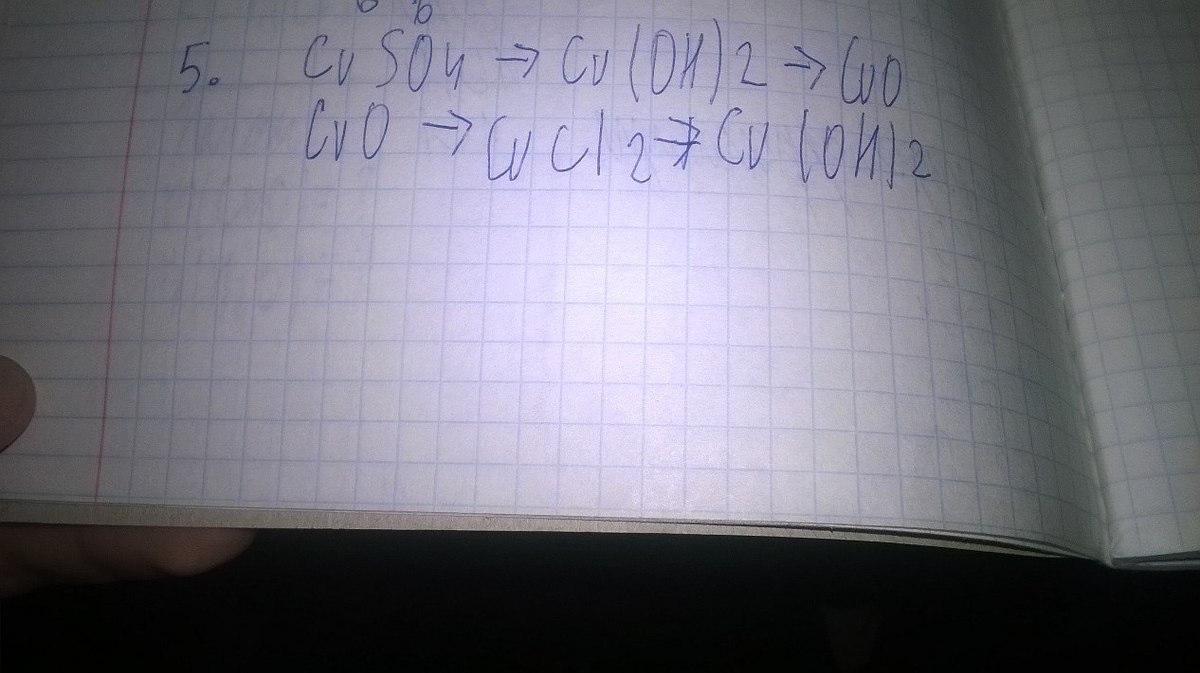 5. CuSO4 → Cu(OH)2 → CuO
CuO → CuCl2 → Cu(OH)2